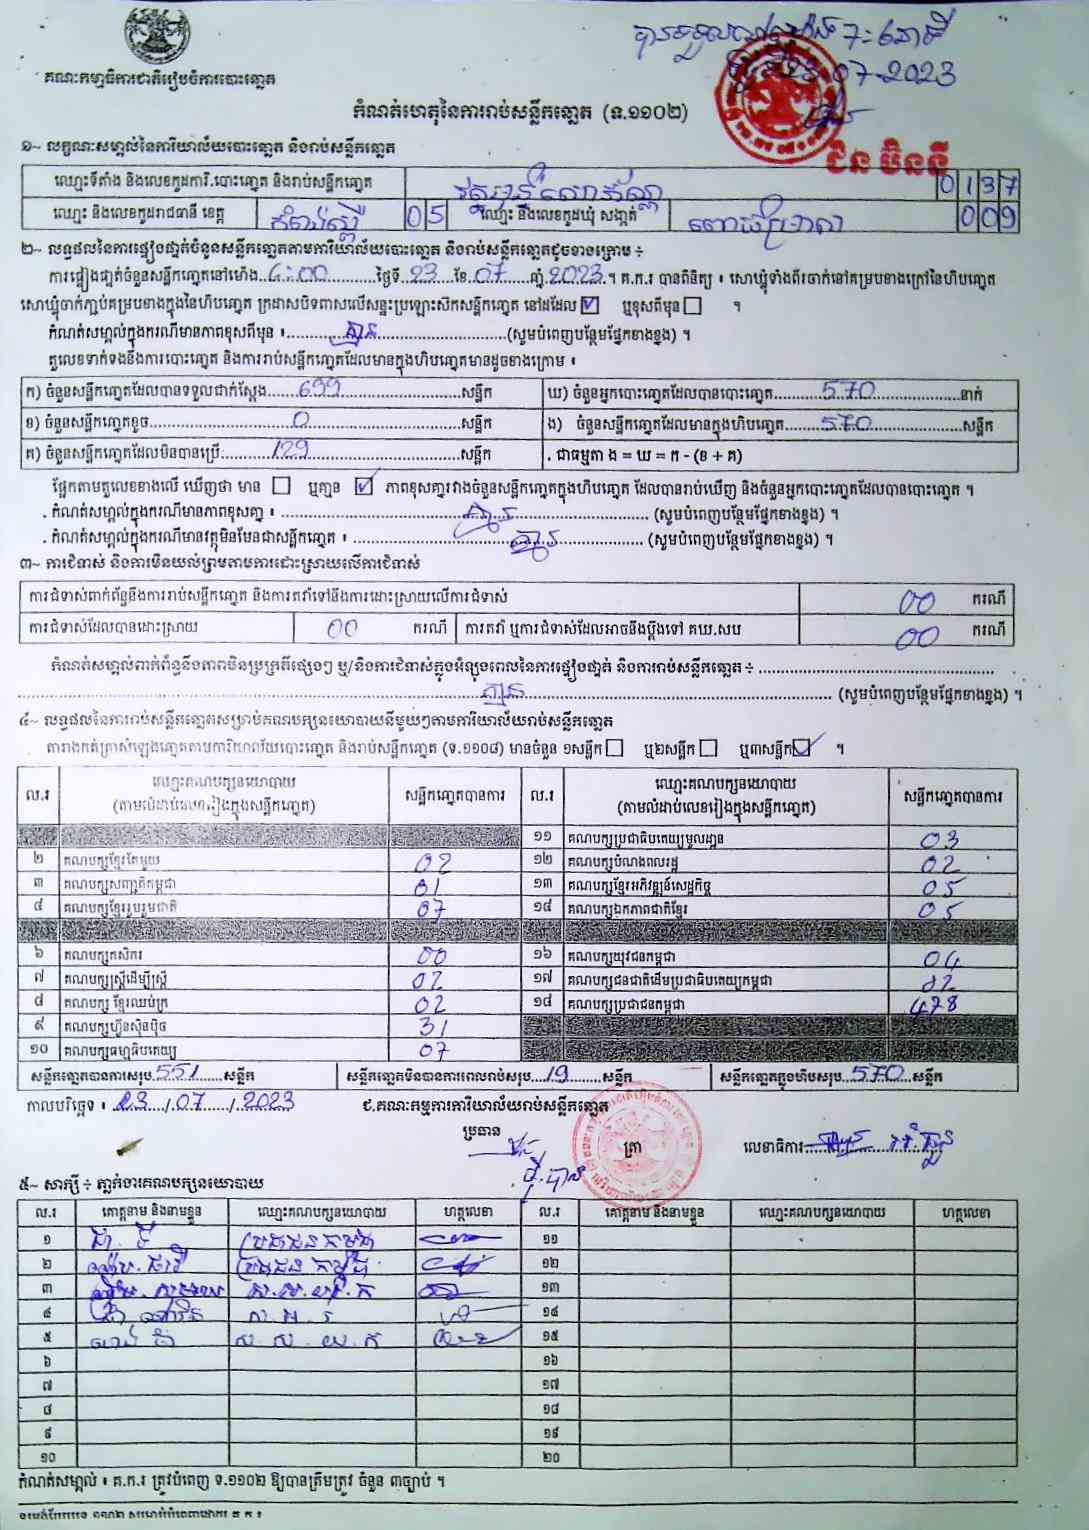 បានទទួលនៅម៉ោង 7:
23-07-2023
គណៈកម្មាធិការជាតិរៀបចំការបោះឆ្នោត
កំណត់ហេតុនៃការរាប់សន្លឹកឆ្នោត (ទ.១១០២)
ជិន ប៊ិនឌី
១~ លក្ខណៈសម្គាល់នៃការិយាល័យបោះឆ្នោត និងរាប់សន្លឹកឆ្នោត
ឈ្មោះទីតាំង និងលេខកូដការិ.បោះឆ្នោត និងរាប់សន្លឹកឆ្នោត 0137
ឈ្មោះ និងលេខកូដរាជធានី ខេត្ត កំពង់ស្ពឺ 05 ឈ្មោះ និងលេខកូដឃុំ សង្កាត់ ពោធិ៍ម្រាល 009
២~ លទ្ធផលនៃការផ្ទៀងផ្ទាត់ចំនួនសន្លឹកឆ្នោតតាមការិយាល័យបោះឆ្នោត និងរាប់សន្លឹកឆ្នោតដូចខាងក្រោម ÷
ការផ្ទៀងផ្ទាត់ចំនួនសន្លឹកឆ្នោតនៅម៉ោង 4:00 ថ្ងៃទី 23 ខែ 07 ឆ្នាំ 2023 ។ គ.ក.រ បានពិនិត្យ ៖ សោឃ្មុំទាំងពីរចាក់នៅគម្របខាងក្រៅនៃហិបឆ្នោត
សោឃ្មុំចាក់ភ្ជាប់គម្របខាងក្នុងនៃហិបឆ្នោត ក្រដាសបិទពាសលើសន្ទះប្រឡោះសឹកសន្លឹកឆ្នោត នៅដដែល ☑ ឬខុសពីមុន ☐ ។
កំណត់សម្គាល់ក្នុងករណីមានភាពខុសពីមុន ៖ គ្មាន (សូមបំពេញបន្ថែមផ្នែកខាងខ្នង) ។
តួលេខទាក់ទងនឹងការបោះឆ្នោត និងការរាប់សន្លឹកឆ្នោតដែលមានក្នុងហិបឆ្នោតមានដូចខាងក្រោម ៖
ក) ចំនួនសន្លឹកឆ្នោតដែលបានទទួលជាក់ស្តែង 699 សន្លឹក ឃ) ចំនួនអ្នកបោះឆ្នោតដែលបានបោះឆ្នោត 570 នាក់
ខ) ចំនួនសន្លឹកឆ្នោតខូច 0 សន្លឹក ង) ចំនួនសន្លឹកឆ្នោតដែលមានក្នុងហិបឆ្នោត 570 សន្លឹក
គ) ចំនួនសន្លឹកឆ្នោតដែលមិនបានប្រើ 129 សន្លឹក . ជាធម្មតា ង = ឃ = ក - (ខ + គ)
ផ្អែកតាមតួលេខខាងលើ ឃើញថា មាន ☐ ឬគ្មាន ☑ ភាពខុសគ្នារវាងចំនួនសន្លឹកឆ្នោតក្នុងហិបឆ្នោត ដែលបានរាប់ឃើញ និងចំនួនអ្នកបោះឆ្នោតដែលបានបោះឆ្នោត ។
. កំណត់សម្គាល់ក្នុងករណីមានភាពខុសគ្នា ៖ គ្មាន (សូមបំពេញបន្ថែមផ្នែកខាងខ្នង) ។
. កំណត់សម្គាល់ក្នុងករណីមានវត្ថុមិនមែនជាសន្លឹកឆ្នោត ៖ គ្មាន (សូមបំពេញបន្ថែមផ្នែកខាងខ្នង) ។
៣~ ការជំទាស់ និងការមិនយល់ព្រមតាមការដោះស្រាយលើការជំទាស់
ការជំទាស់ពាក់ព័ន្ធនឹងការរាប់សន្លឹកឆ្នោត និងការតវ៉ាទៅនឹងការដោះស្រាយលើការជំទាស់ 00 ករណី
ការជំទាស់ដែលបានដោះស្រាយ 00 ករណី ការតវ៉ា ឬការជំទាស់ដែលអាចនឹងប្តឹងទៅ គឃ.សប 00 ករណី
កំណត់សម្គាល់ពាក់ព័ន្ធនឹងភាពមិនប្រក្រតីផ្សេងៗ ឬ/និងការជំទាស់ក្នុងអំឡុងពេលនៃការផ្ទៀងផ្ទាត់ និងការរាប់សន្លឹកឆ្នោត ÷
គ្មាន (សូមបំពេញបន្ថែមផ្នែកខាងខ្នង) ។
៤~ លទ្ធផលនៃការរាប់សន្លឹកឆ្នោតសម្រាប់គណបក្សនយោបាយនីមួយៗតាមការិយាល័យរាប់សន្លឹកឆ្នោត
តារាងកត់ត្រាសំឡេងឆ្នោតតាមការិយាល័យបោះឆ្នោត និងរាប់សន្លឹកឆ្នោត (ទ.១១០៨) មានចំនួន ១សន្លឹក ☐ ឬ២សន្លឹក ☐ ឬ៣សន្លឹក ☑ ។
ល.រ ឈ្មោះគណបក្សនយោបាយ (តាមលំដាប់លេខរៀងក្នុងសន្លឹកឆ្នោត) សន្លឹកឆ្នោតបានការ ល.រ ឈ្មោះគណបក្សនយោបាយ (តាមលំដាប់លេខរៀងក្នុងសន្លឹកឆ្នោត) សន្លឹកឆ្នោតបានការ
១១ គណបក្សប្រជាធិបតេយ្យមូលដ្ឋាន 03
២ គណបក្សខ្មែរតែមួយ 02 ១២ គណបក្សបំណងពលរដ្ឋ 02
៣ គណបក្សសញ្ជាតិកម្ពុជា 01 ១៣ គណបក្សខ្មែរអភិវឌ្ឍន៍សេដ្ឋកិច្ច 05
៤ គណបក្សខ្មែររួបរួមជាតិ 07 ១៤ គណបក្សឯកភាពជាតិខ្មែរ 05
៦ គណបក្សកសិករ 00 ១៦ គណបក្សយុវជនកម្ពុជា 04
៧ គណបក្សស្ត្រីដើម្បីស្ត្រី 02 ១៧ គណបក្សជនជាតិដើមប្រជាធិបតេយ្យកម្ពុជា 02
៨ គណបក្ស ខ្មែរឈប់ក្រ 02 ១៨ គណបក្សប្រជាជនកម្ពុជា 478
៩ គណបក្សហ្វ៊ុនស៊ិនប៉ិច 31
១០ គណបក្សធម្មាធិបតេយ្យ 07
សន្លឹកឆ្នោតបានការសរុប 551 សន្លឹក សន្លឹកឆ្នោតមិនបានការពេលរាប់សរុប 19 សន្លឹក សន្លឹកឆ្នោតក្នុងហិបសរុប 570 សន្លឹក
កាលបរិច្ឆេទ ៖ 23/07/2023 ជ.គណៈកម្មការការិយាល័យរាប់សន្លឹកឆ្នោត
ប្រធាន ត្រា លេខាធិការ
៥~ សាក្សី ÷ ភ្នាក់ងារគណបក្សនយោបាយ
ល.រ គោត្តនាម និងនាមខ្លួន ឈ្មោះគណបក្សនយោបាយ ហត្ថលេខា ល.រ គោត្តនាម និងនាមខ្លួន ឈ្មោះគណបក្សនយោបាយ ហត្ថលេខា
១ ប្រជាជនកម្ពុជា ១១
២ ប្រជាជនកម្ពុជា ១២
៣ ១៣
៤ ១៤
៥ ១៥
៦ ១៦
៧ ១៧
៨ ១៨
៩ ១៩
១០ ២០
កំណត់សម្គាល់ ៖ គ.ក.រ ត្រូវបំពេញ ទ.១១០២ ឱ្យបានត្រឹមត្រូវ ចំនួន ៣ច្បាប់ ។